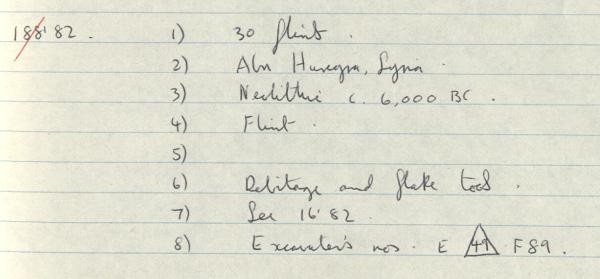 188'82. 1) 30 flint.
2) Abu Hureyra, Syria.
3) Neolithic c. 6,000 BC.
4) Flint.
5)
6) Debitage and flake tools.
7) See 16'82.
8) Excavater's nos. E 49 F89.